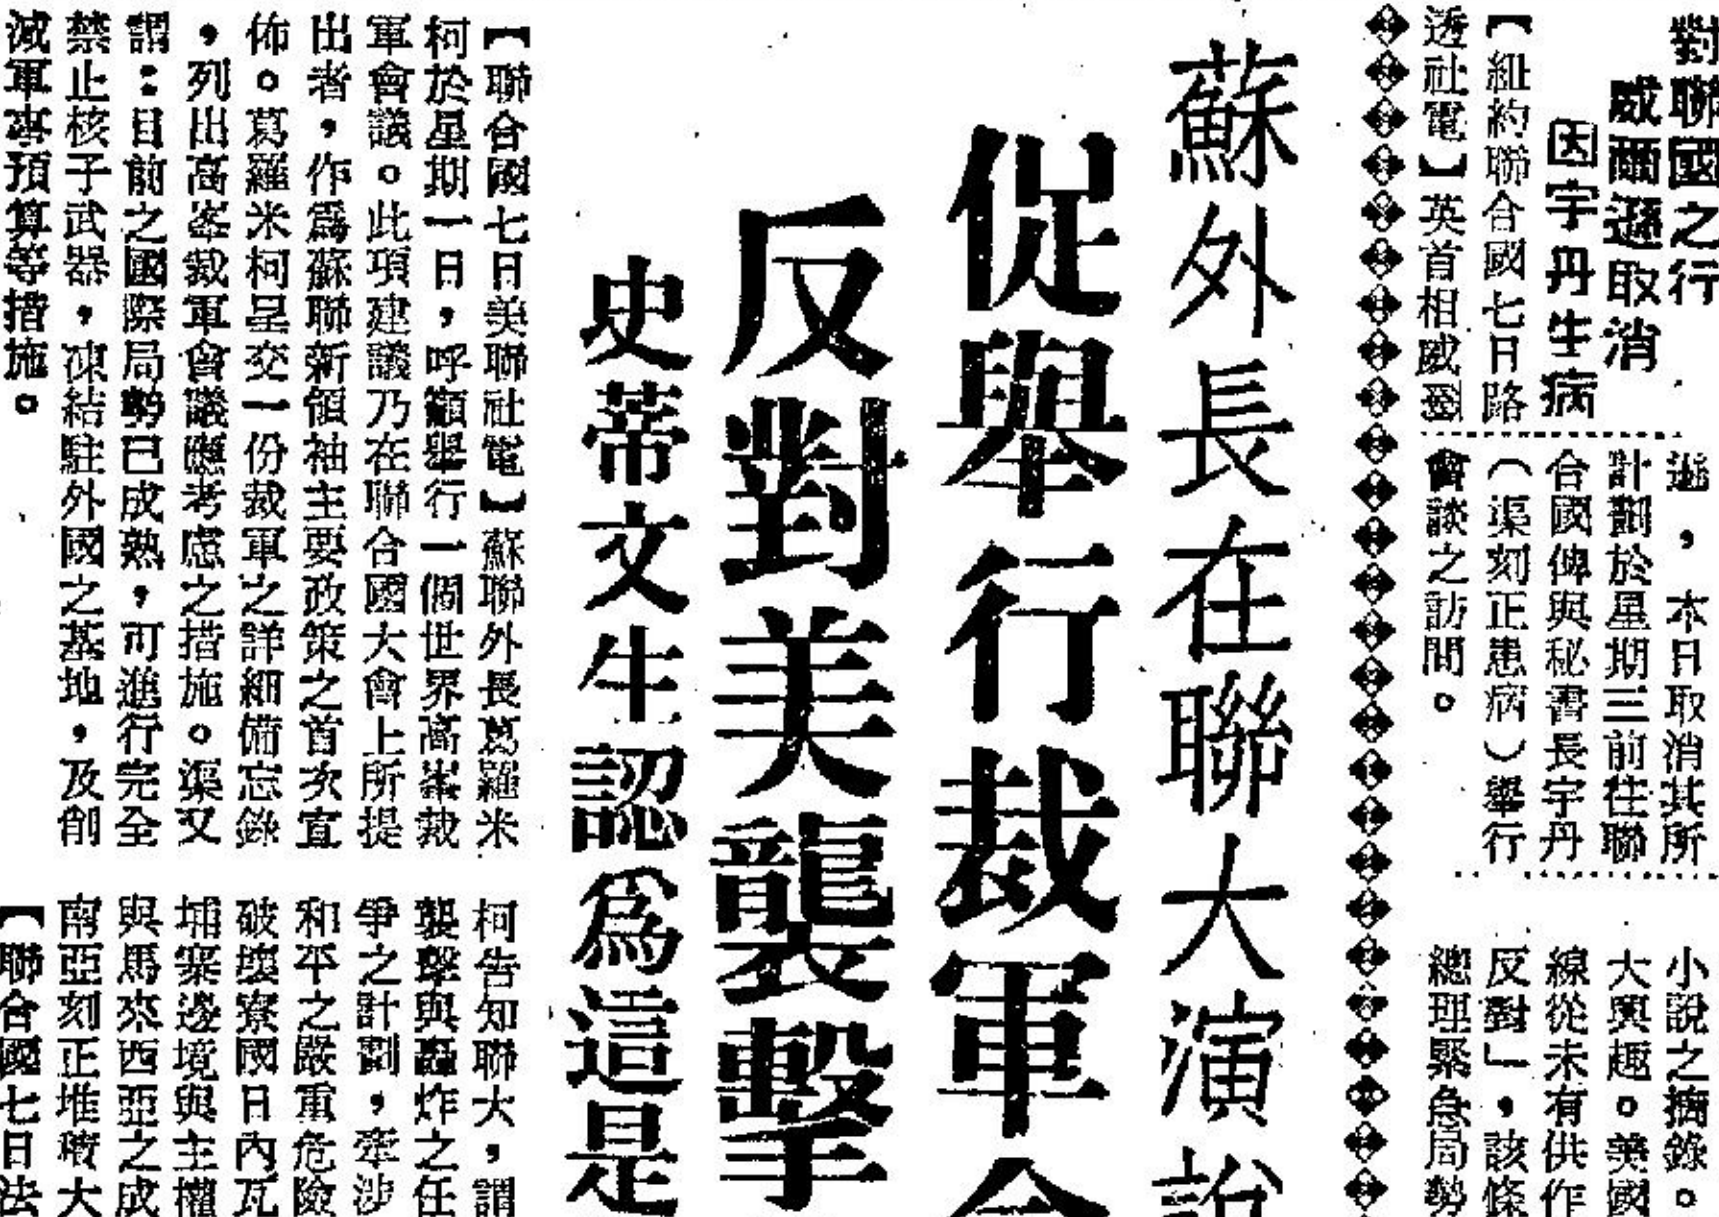 對聯國之行
威爾遜取消
因宇丹生病
【紐約聯合國七日路
透社電】英首相威爾
遜，本日取消其所
計劃於星期三前往聯
合國俾與秘書長宇丹
（渠刻正患病）舉行
會談之訪問。
小說之摘錄。
大興趣。美國
線從未有供作
反對」，該條
總理緊急局勢
蘇外長在聯大演說
促舉行裁軍會
反對美襲擊
史蒂文生認為這是
【聯合國七日美聯社電】蘇聯外長葛羅米
柯於星期一日，呼籲舉行一個世界高峯裁
軍會議。此項建議乃在聯合國大會上所提
出者，作爲蘇聯新領袖主要政策之首次宣
佈。葛羅米柯呈交一份裁軍之詳細備忘錄
，列出高峯裁軍會議應考慮之措施。渠又
謂：目前之國際局勢已成熟，可進行完全
禁止核子武器，凍結駐外國之基地，及削
減軍事預算等措施。
柯告知聯大，謂
襲擊與轟炸之任
爭之計劃，牽涉
和平之嚴重危險
破壞寮國日內瓦
埔寨邊境與主權
與馬來西亞之成
南亞刻正堆積大
【聯合國七日法